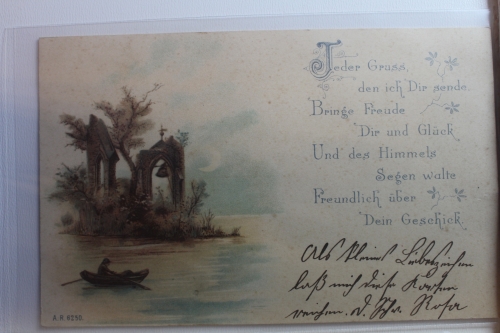 Jeder Gruss,
den ich Dir sende
Bringe Freude
Dir und Glück
Und des Himmels
Segen walte
Freundlich über
Dein Geschick.
Als kleines Liebeszeichen
laß mich diese Karten
d. Schw. Rosa
A.R. 6250.